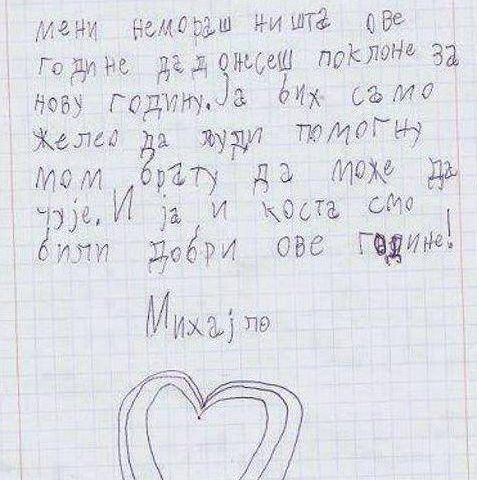 мени немораш ништа ове
године да донесеш поклоне за
нову годину. Ја бих само
желео да људи помогну
мом брату да може да
чује. И ја и коста смо
били добри ове године!
Михајло